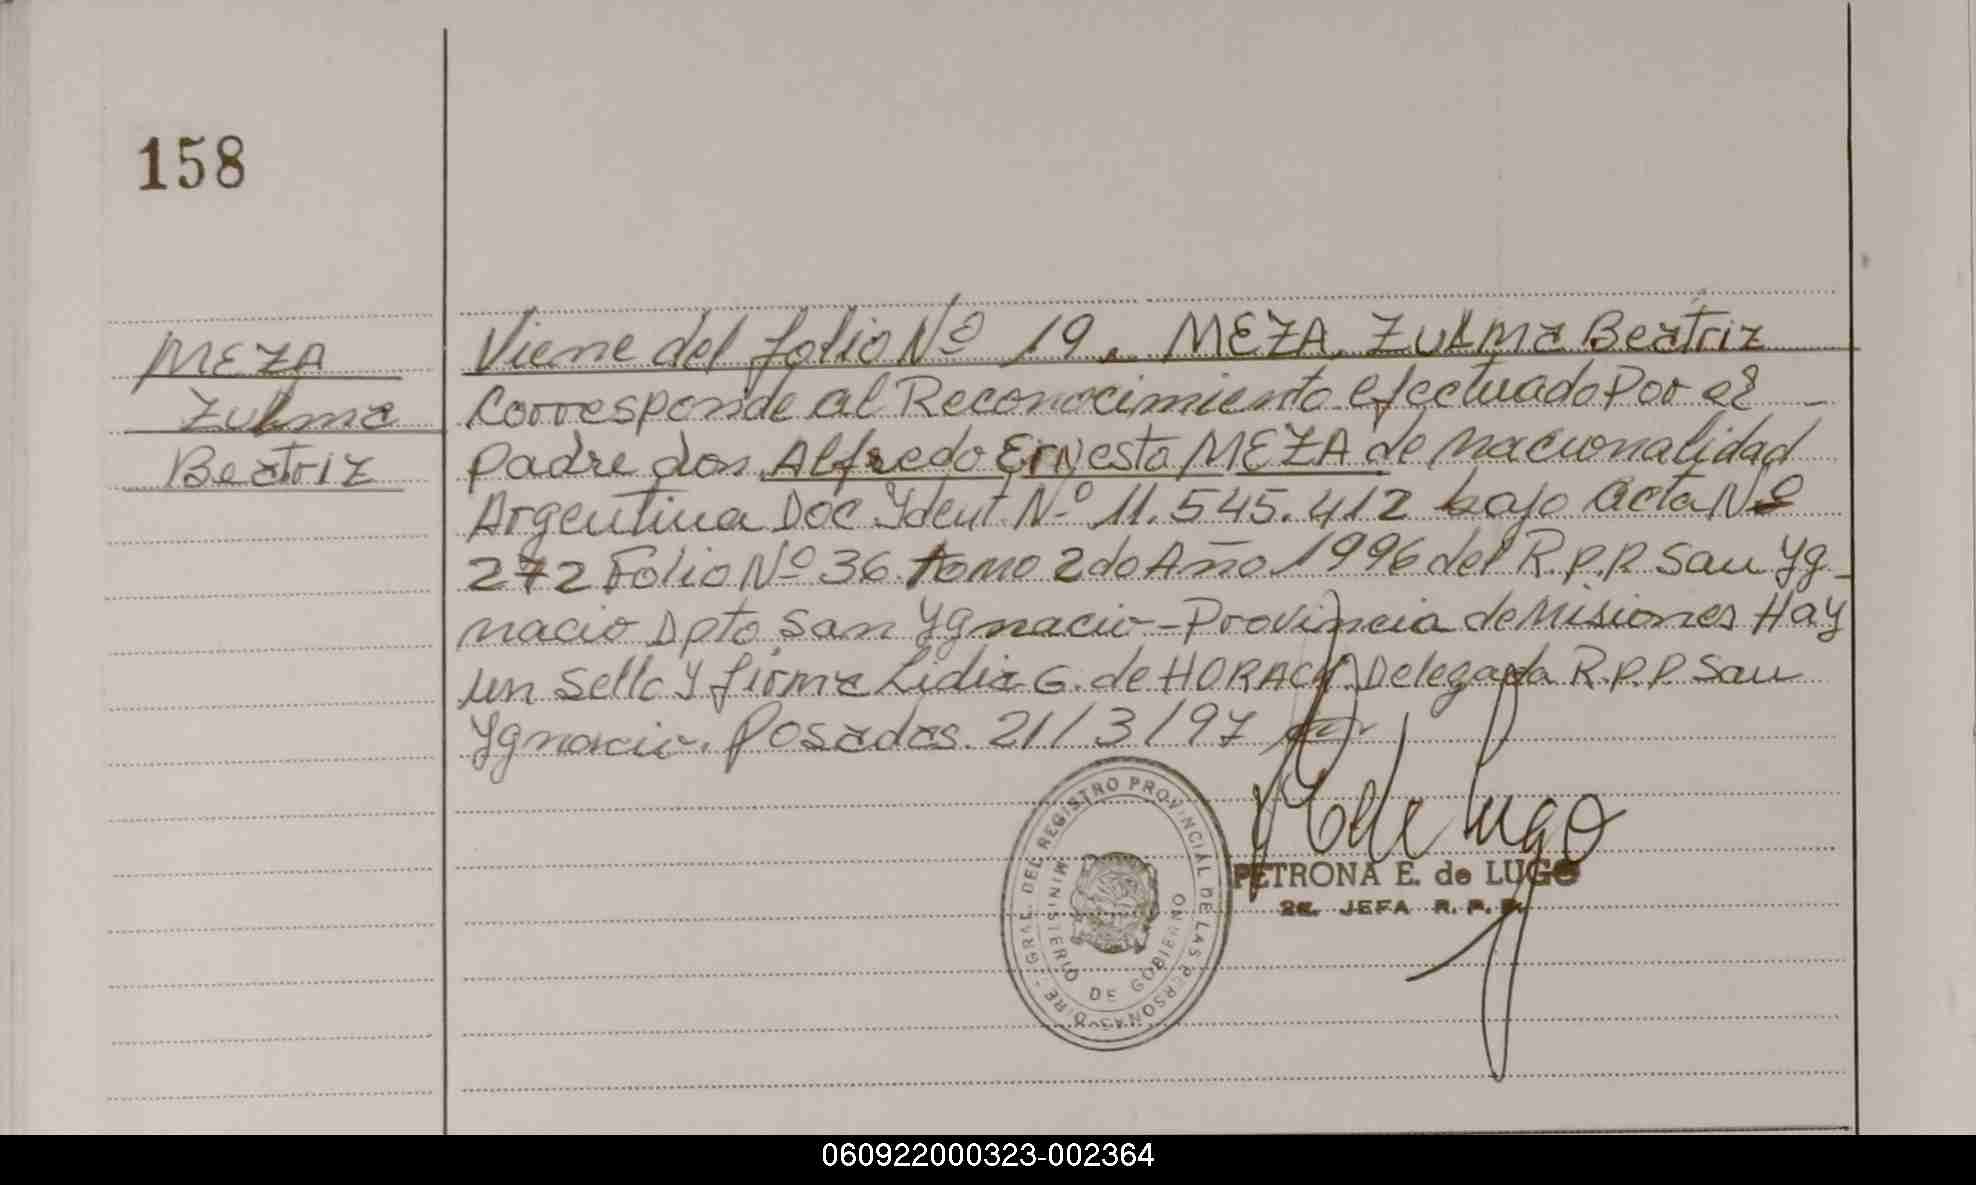 158
MEZA
Zulma
Beatriz
Viene del folio Nº 19. MEZA, Zulma Beatriz
Corresponde al Reconocimiento efectuado Por el
padre don Alfredo Ernesto MEZA de nacionalidad
Argentina Doc Ydent. Nº 11.545.412 bajo acta Nº
272 Folio Nº 36 tomo 2do Año 1996 del R.P.P. San Yg_
nacio Dpto San Ygnacio - Provincia de Misiones Hay
un Sello y firma Lidia G. de HORACK Delegada R.P.P. San
Ygnacio. Posadas. 21/3/97
DIRE. GRAL. DEL REGISTRO PROVINCIAL DE LAS PERSONAS
MINISTERIO DE GOBIERNO
PETRONA E. de LUGO
2a. JEFA R. P. P.
060922000323-002364